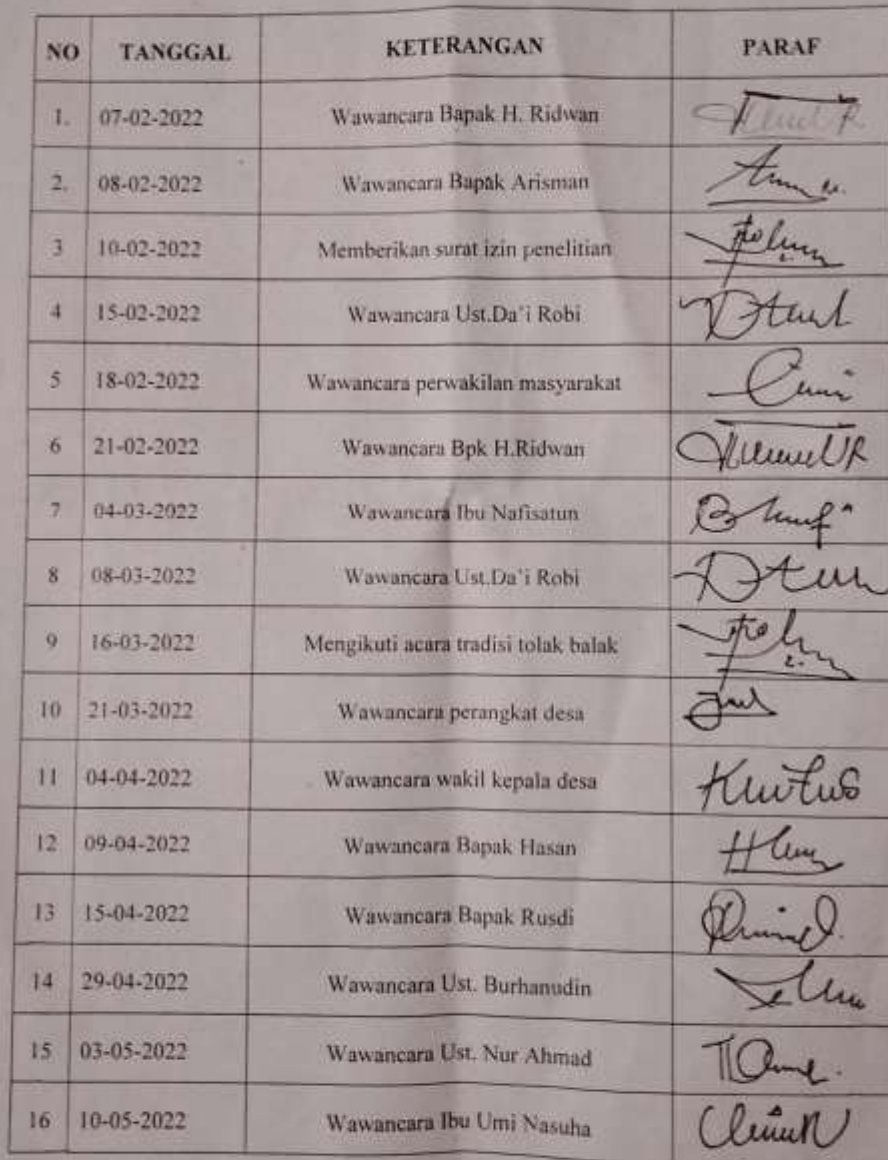 NO TANGGAL KETERANGAN PARAF
1. 07-02-2022 Wawancara Bapak H. Ridwan
2. 08-02-2022 Wawancara Bapak Arisman
3 10-02-2022 Memberikan surat izin penelitian
4 15-02-2022 Wawancara Ust.Da'i Robi
5 18-02-2022 Wawancara perwakilan masyarakat
6 21-02-2022 Wawancara Bpk H.Ridwan
7 04-03-2022 Wawancara Ibu Nafisatun
8 08-03-2022 Wawancara Ust.Da'i Robi
9 16-03-2022 Mengikuti acara tradisi tolak balak
10 21-03-2022 Wawancara perangkat desa
11 04-04-2022 Wawancara wakil kepala desa
12 09-04-2022 Wawancara Bapak Hasan
13 15-04-2022 Wawancara Bapak Rusdi
14 29-04-2022 Wawancara Ust. Burhanudin
15 03-05-2022 Wawancara Ust. Nur Ahmad
16 10-05-2022 Wawancara Ibu Umi Nasuha